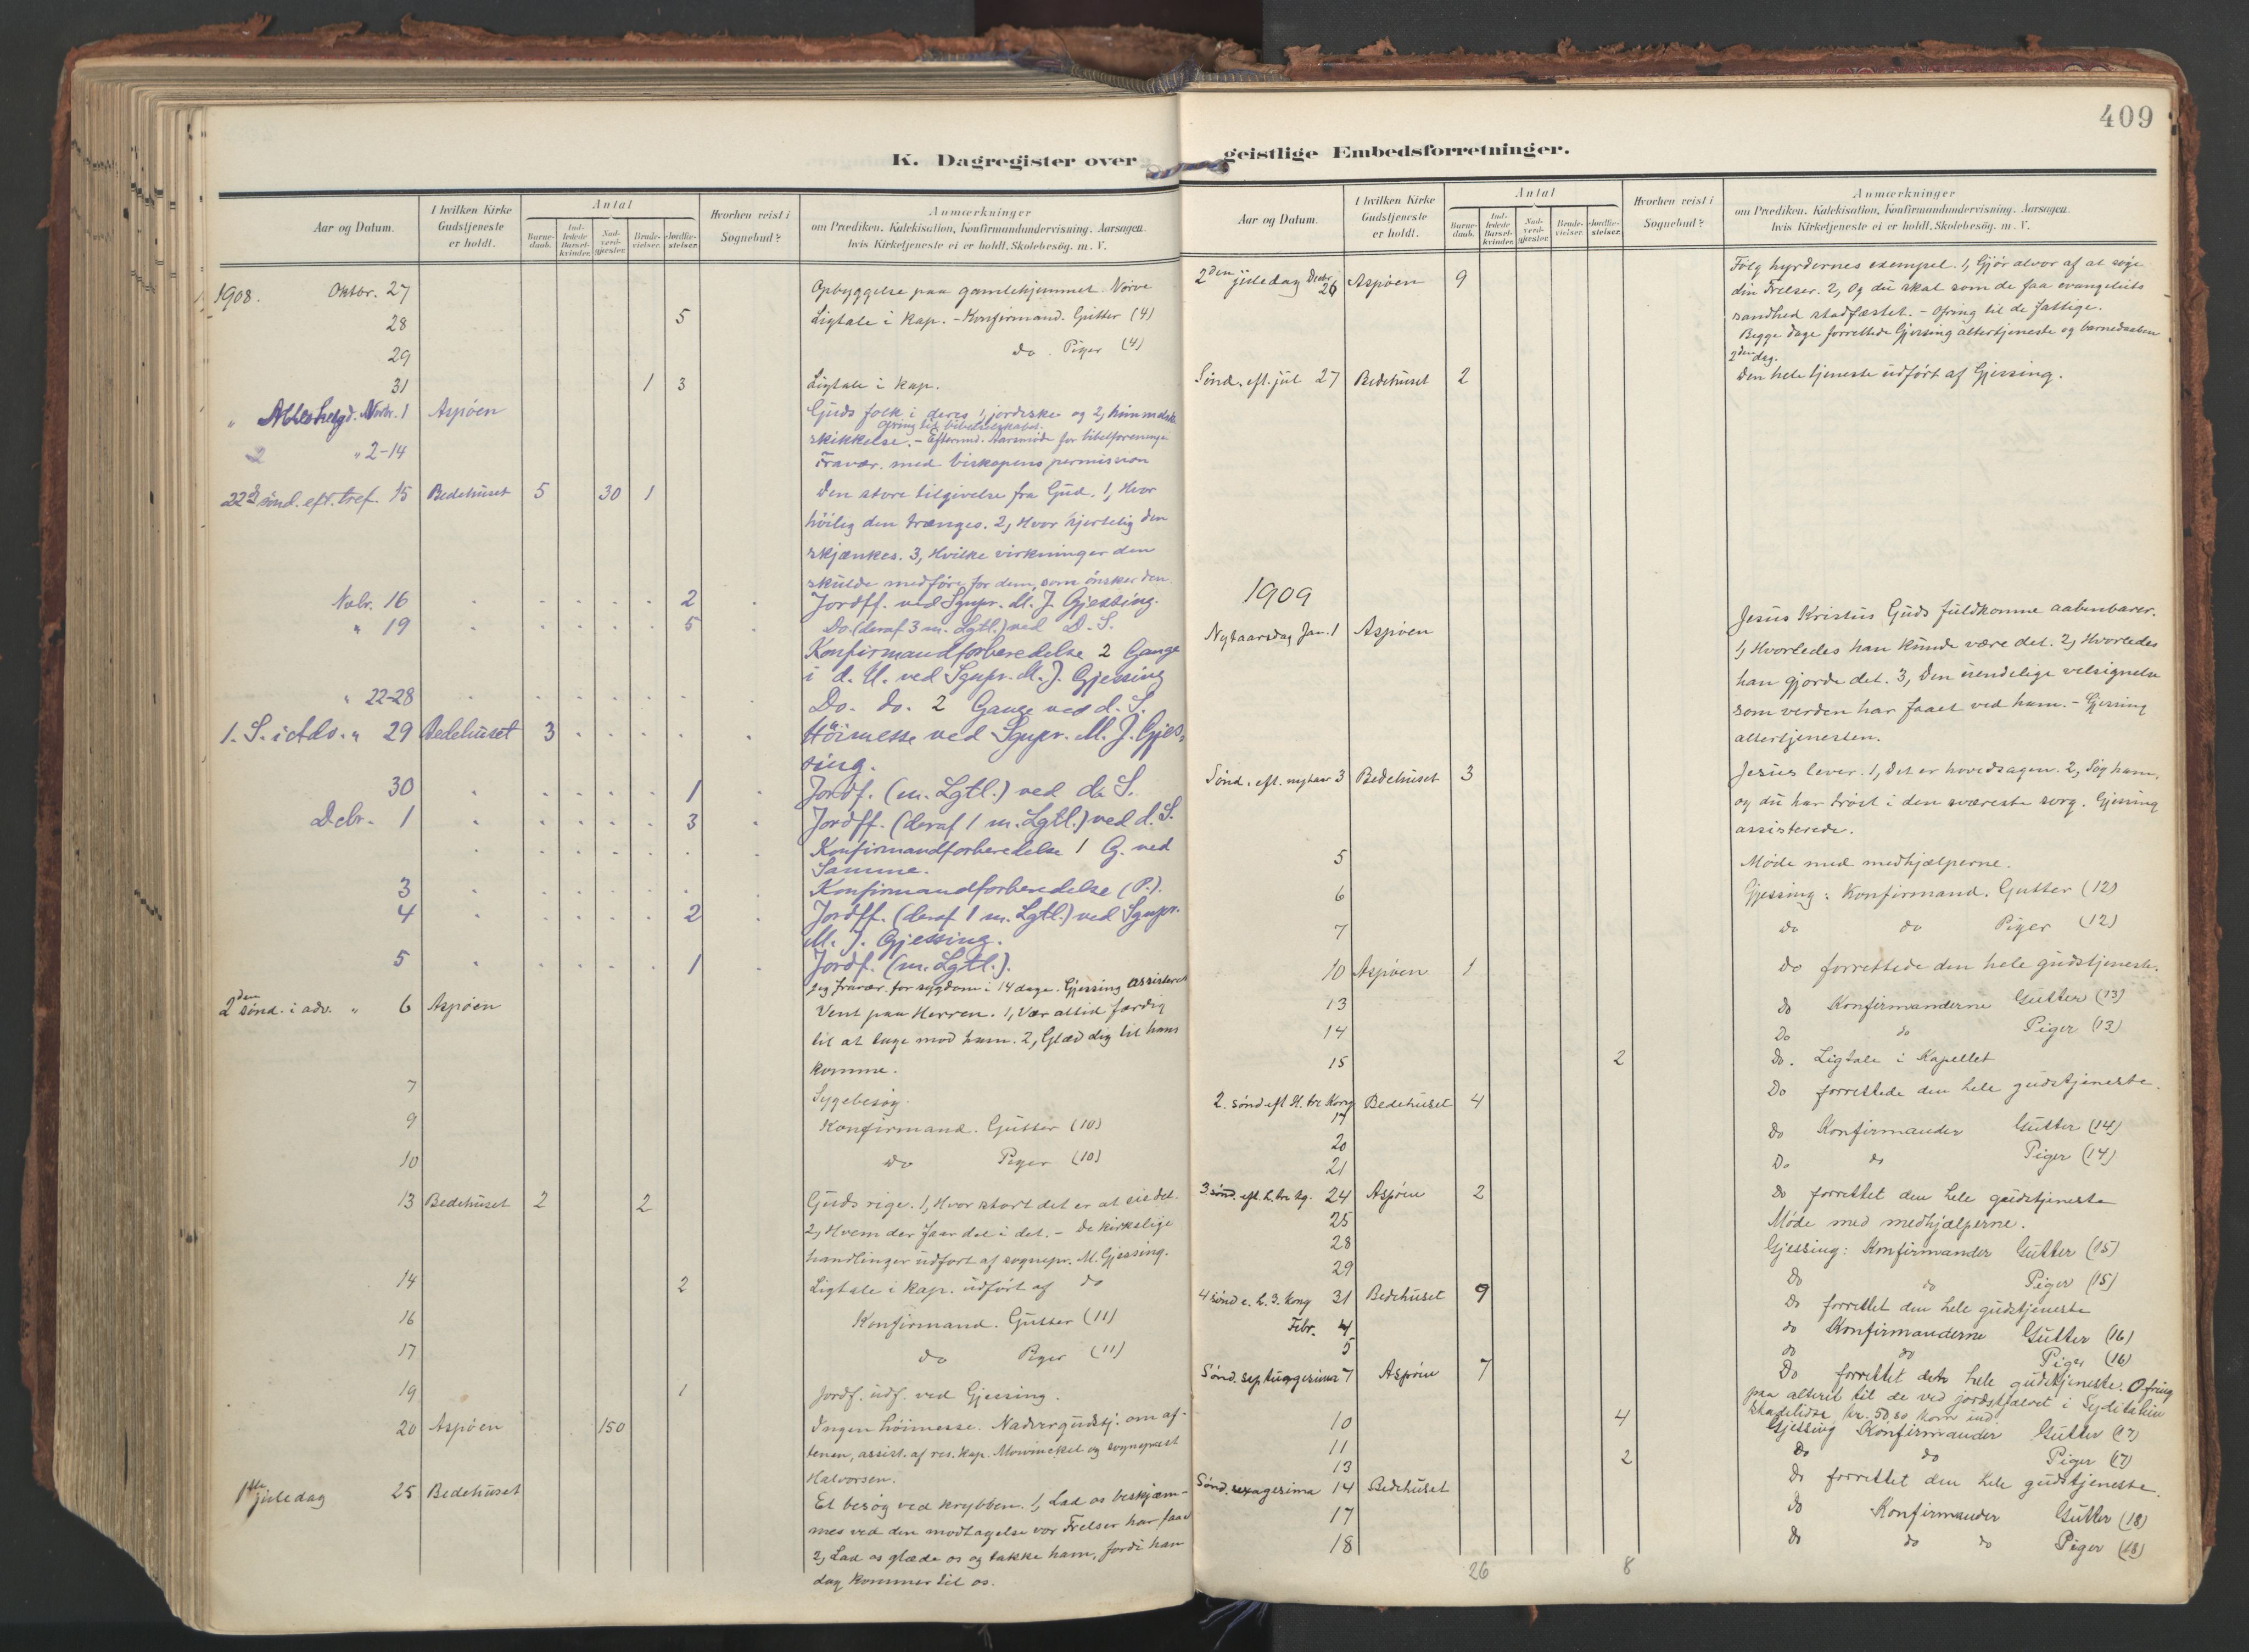 409
K. Dagregister over geistlige Embedsforretninger.
Aar og Datum.
I hvilken Kirke Gudstjeneste er holdt.
Antal
Barnedaab.
Indledede Barselkvinder.
Nadverdgjester.
Brudevielser.
Jordfæstelser.
Hvorhen reist i Sognebud?
Anmærkninger
om Prædiken, Katekisation, Konfirmandundervisning. Aarsagen
hvis Kirketjeneste ei er holdt. Skolebesög. m. V.
1908. Oktbr. 27 Opbyggelse paa gamlehjemmet Nörve
28 5 Ligtale i Kap. - Konfirmand. Gutter (4)
29 do. Piger (4)
31 1 3 Ligtale i kap.
" Allehelgd. Novbr. 1 Aspöen Guds folk i deres 1, jordiske og 2, himmelske
ofring til bibelselskabet.
skikkelse. - Eftermd. Aarsmöde for bibelforeninge
" 2-14 Fravær. med biskopens permission
22de sönd. eft. tref. 15 Bedehuset 5 30 1 Den store tilgivelse fra Gud. 1, Hvor
höilig den trænges. 2, Hvor hjertelig den
skjænkes. 3, Hvilke virkninger den
skulde medföre for dem, som önsker den
Nvbr. 16 2 Jordff. ved Sgnpr. M. J. Gjessing.
" 19 5 Do. (deraf 3 m. Lgtl.) ved D. S.
Konfirmandforberedelse 2 Gange
i d. U. ved Sgnpr. M. J. Gjessing
" 22-28 Do. do. 2 Gange ved d. S.
1. S. i Adv. " 29 Bedehuset 3 Höimesse ved Sgnpr. M. J. Gjes-
sing.
30 1 Jordf. (m. Lgtl.) ved d. S.
Dcbr. 1 3 Jordff. (deraf 1 m. Lgtl.) ved d. S.
Konfirmandforberedelse 1 G. ved
Samme.
3 Konfirmandforberedelse (P.).
4 2 Jordff. (deraf 1 m. Lgtl.) ved Sgnpr.
M. J. Gjessing.
5 1 Jordf. (m. Lgtl.).
Jeg fravær. for sygdom i 14 dage. Gjessing assisteret
2den sönd. i adv. " 6 Aspöen Vent paa Herren. 1, Vær altid færdig
til at tage mod ham. 2, Glæd dig til hans
komme.
7 Sygebesög.
9 Konfirmand. Gutter (10)
10 do Piger (10)
13 Bedehuset 2 2 Guds rige. 1, Hvor stort det er at eie det.
2, Hvem der faar del i det. - De kirkelige
handlinger udfört af sognepr. M. Gjessing.
14 2 Ligtale i kap. udfört af do
16 Konfirmand. Gutter (11)
17 do Piger (11)
19 1 Jordf. udf. ved Gjessing.
20 Aspöen 150 Ingen höimesse. Nadvergudstj. om af-
tenen, assist. af res. kap. Mowinckel og sogneprest
Halvorsen.
1ste juledag 25 Bedehuset Et besög ved krybben. 1, Lad os beskjæm-
mes ved den modtagelse vor Frelser har faaet
2, Lad os glæde os og takke ham, fordi han
dog kommer til os.
Aar og Datum.
I hvilken Kirke Gudstjeneste er holdt.
Antal
Barnedaab.
Indledede Barselkvinder.
Nadverdgjester.
Brudevielser.
Jordfæstelser.
Hvorhen reist i Sognebud?
Anmærkninger
om Prædiken, Katekisation, Konfirmandundervisning. Aarsagen
hvis Kirketjeneste ei er holdt. Skolebesög. m. V.
2den juledag Decbr 26 Aspöen 9 Fölg hyrdernes exempel. 1, Gjör alvor af at söge
din Frelser. 2, Og du skal som de faa evangeliets
sandhed stadfæstet. - Ofring til de fattige.
Begge dage forrettede Gjessing altertjeneste og barnedaaben
2den dag.
Sönd. eft. jul 27 Bedehuset 2 Den hele tjeneste udfört af Gjessing.
1909
Nytaarsdag Jan. 1 Aspöen Jesus Kristus Guds fuldkomne aabenbarer.
1, Hvorledes han kunde være det. 2, Hvorledes
han gjorde det. 3, Den uendelige velsignelse
som verden har faaet ved ham. - Gjessing
altertjenesten.
Sönd. eft. nytaar 3 Bedehuset 3 Jesus lever. 1, Det er hovedsagen. 2, Søg ham,
og du har tröst i den sværeste sorg. Gjessing
assisterede.
5 Möde med medhjælperne.
6 Gjessing: Konfirmand. Gutter (12)
7 do do Piger (12)
10 Aspöen 1 do forrettede den hele gudstjeneste.
13 do Konfirmanderne Gutter (13)
14 Do do Piger (13)
15 2 Do. Ligtale i Kapellet
2. sönd eft H. tre Kong 17 Bedehuset 4 Do forrettede den hele gudstjeneste.
20 do Konfirmander Gutter (14)
21 Do do Piger (14)
3. sönd. eft. h. tre kg. 24 Aspöen 2 do forrettet den hele gudstjeneste
25 Möde med medhjælperne.
28 Gjessing: Konfirmander Gutter (15)
29 Do do Piger (15)
4 sönd e. h. 3. kong 31 Bedehuset 9 Do forrettet den hele gudstjeneste
Febr. 4 do Konfirmanderne Gutter (16)
5 do do Piger (16)
Sönd. septuagesima 7 Aspöen 7 Do forrettet den hele gudstjeneste. Ofring
paa alteret til de ved jordskjælvet i Syditalien
skadelidte kr. 50,80 kom ind.
10 4 Gjessing Konfirmander Gutter (17)
11 Do do Piger (17)
13 2
Sönd. sexagesima 14 Bedehuset Do forrettet den hele gudstjeneste.
17 Do Konfirmander Gutter (18)
18 Do do do Piger (18)
26 8